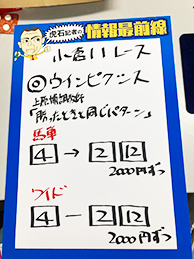 虎石記者の
情報最前線
小倉11レース
◎ウインピクシス
上原博調教師
「勝ったときと同じパターン」
馬単
4 → 2 12
2000円ずつ
ワイド
4 − 2 12
2000円ずつ